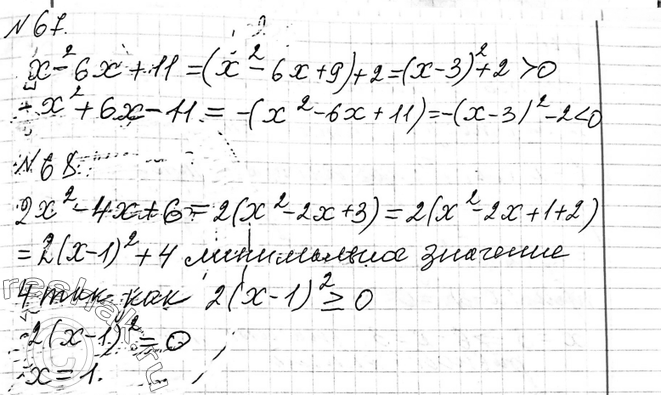 №67.
x²-6x+11=(x²-6x+9)+2=(x-3)²+2>0
-x²+6x-11=-(x²-6x+11)=-(x-3)²-2<0
№68.
2x²-4x+6=2(x²-2x+3)=2(x²-2x+1+2)
=2(x-1)²+4 минимальное значение
4 так как 2(x-1)²≥0
2(x-1)²=0
x=1.